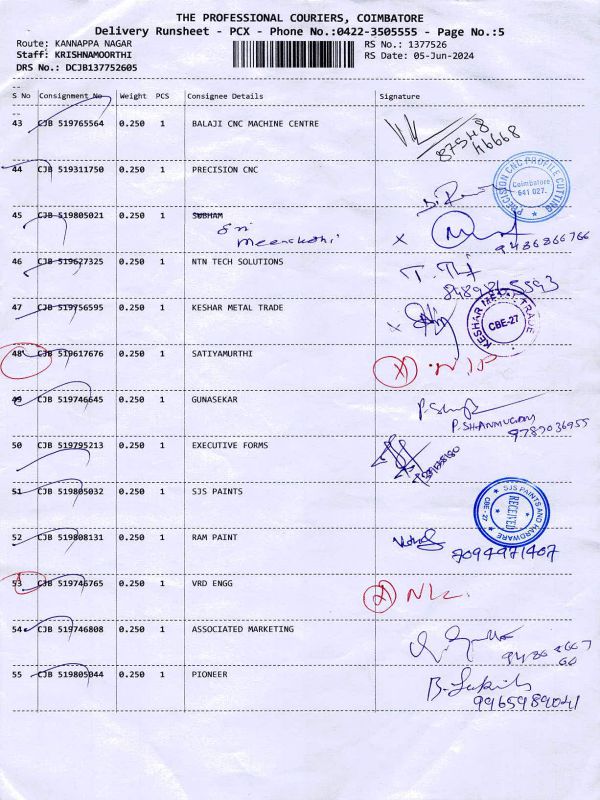 THE PROFESSIONAL COURIERS, COIMBATORE
Delivery Runsheet - PCX - Phone No.:0422-3505555 - Page No.:5
Route: KANNAPPA NAGAR RS No.: 1377526
Staff: KRISHNAMOORTHI RS Date: 05-Jun-2024
DRS No.: DCJB137752605
S No Consignment No Weight PCS Consignee Details Signature
43 CJB 519765564 0.250 1 BALAJI CNC MACHINE CENTRE
87548
46668
44 CJB 519311750 0.250 1 PRECISION CNC
PRECISION CNC PROFILE CUTTING
Coimbatore
641 027.
45 CJB 519805021 0.250 1 SUBHAM
Sri
Meenakshi
x
9486866766
46 CJB 519627325 0.250 1 NTN TECH SOLUTIONS
47 CJB 519756595 0.250 1 KESHAR METAL TRADE
x
KESHAR METAL TRADE
CBE-27
48 CJB 519617676 0.250 1 SATIYAMURTHI
49 CJB 519746645 0.250 1 GUNASEKAR
P. SHANMUGAM
9787036955
50 CJB 519795213 0.250 1 EXECUTIVE FORMS
51 CJB 519805032 0.250 1 SJS PAINTS
SJS PAINTS AND HARDWARE
RECEIVED
CBE - 27
52 CJB 519808131 0.250 1 RAM PAINT
7094971407
53 CJB 519746765 0.250 1 VRD ENGG
54 CJB 519746808 0.250 1 ASSOCIATED MARKETING
55 CJB 519805044 0.250 1 PIONEER
9965989041